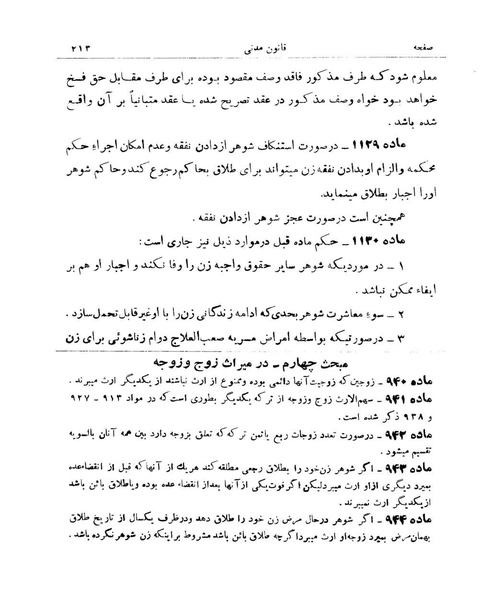 صفحه قانون مدنی ۲۱۳
معلوم شود که طرف مذکور فاقد وصف مقصود بوده برای طرف مقابل حق فسخ
خواهد بود خواه وصف مذکور در عقد تصریح شده یا عقد متبانیاً بر آن واقع
شده باشد .
ماده ۱۱۲۹ ـ درصورت استنکاف شوهر ازدادن نفقه وعدم امکان اجراء حکم
محکمه والزام او بدادن نفقه زن میتواند برای طلاق بحاکم رجوع کند وحاکم شوهر
اورا اجبار بطلاق مینماید.
همچنین است درصورت عجز شوهر ازدادن نفقه .
ماده ۱۱۳۰ ـ حکم ماده قبل درموارد ذیل نیز جاری است :
۱ ـ در موردیکه شوهر سایر حقوق واجبه زن را وفا نکند و اجبار او هم بر
ایفاء ممکن نباشد .
۲ ـ سوء معاشرت شوهر بحدی که ادامه زندگانی زن را با او غیرقابل تحمل سازد .
۳ ـ درصورتیکه بواسطه امراض مسریه صعب‌العلاج دوام زناشوئی برای زن
مبحث چهارم ـ در میراث زوج وزوجه
ماده ۹۴۰ ـ زوجین که زوجیت آنها دائمی بوده وممنوع از ارث نباشند از یکدیگر ارث میبرند .
ماده ۹۴۱ ـ سهم‌الارث زوج وزوجه از ترکه یکدیگر بطوری است که در مواد ۹۱۳ ـ ۹۲۷
و ۹۳۸ ذکر شده است .
ماده ۹۴۲ ـ درصورت تعدد زوجات ربع یاثمن ترکه که تعلق بزوجه دارد بین همه آنان بالسویه
تقسیم میشود .
ماده ۹۴۳ ـ اگر شوهر زن خود را بطلاق رجعی مطلقه کند هریك از آنها که قبل از انقضاء عده
بمیرد دیگری ازاو ارث میبرد لیکن اگر فوت یکی از آنها بعداز انقضاء عده بوده ویاطلاق بائن باشد
ازیکدیگر ارث نمیبرند .
ماده ۹۴۴ ـ اگر شوهر درحال مرض زن خود را طلاق دهد ودرظرف یکسال از تاریخ طلاق
بهمان مرض بمیرد زوجه او ارث میبرد اگرچه طلاق بائن باشد مشروط براینکه زن شوهر نکرده باشد .